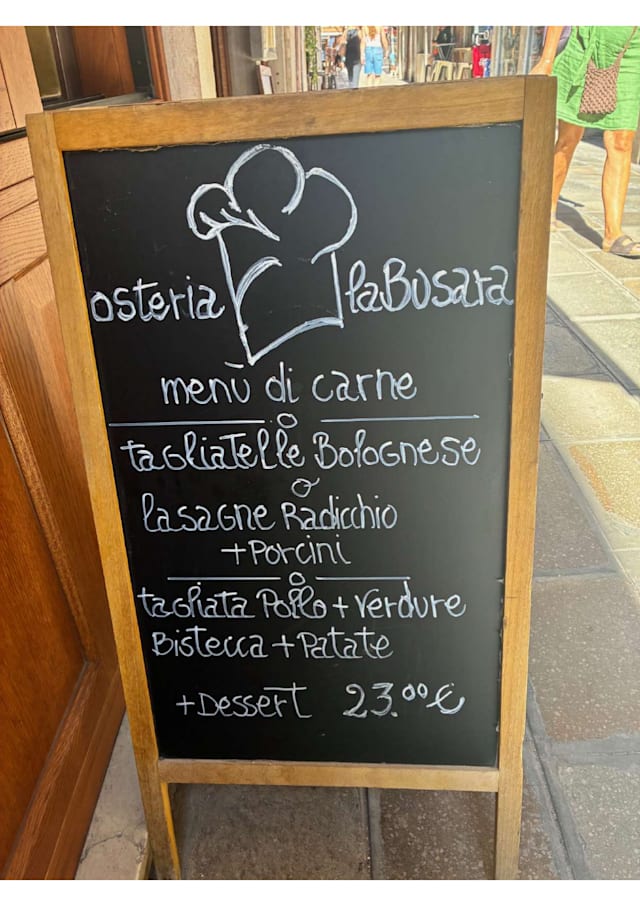 osteria la Busara
menù di carne
o
tagliatelle Bolognese
o
lasagne Radicchio
+Porcini
o
tagliata Pollo + Verdure
Bistecca + Patate
+Dessert 23.00€